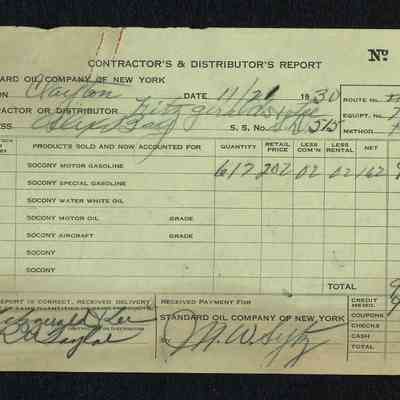 CONTRACTOR'S & DISTRIBUTOR'S REPORT No
ARD OIL COMPANY OF NEW YORK
ON Clayton DATE 11/21 1930 ROUTE No.
ACTOR OR DISTRIBUTOR Fitzgerald & Lee EQUIPT. No.
ESS S. S. No. 515 METHOD
PRODUCTS SOLD AND NOW ACCOUNTED FOR QUANTITY RETAIL PRICE LESS COM'N LESS RENTAL NET
SOCONY MOTOR GASOLINE 617 202 02 02 162
SOCONY SPECIAL GASOLINE
SOCONY WATER WHITE OIL
SOCONY MOTOR OIL GRADE
SOCONY AIRCRAFT GRADE
SOCONY
SOCONY
TOTAL
REPORT IS CORRECT, RECEIVED DELIVERY RECEIVED PAYMENT FOR CREDIT MEMO
STANDARD OIL COMPANY OF NEW YORK COUPONS
CHECKS
CASH
TOTAL